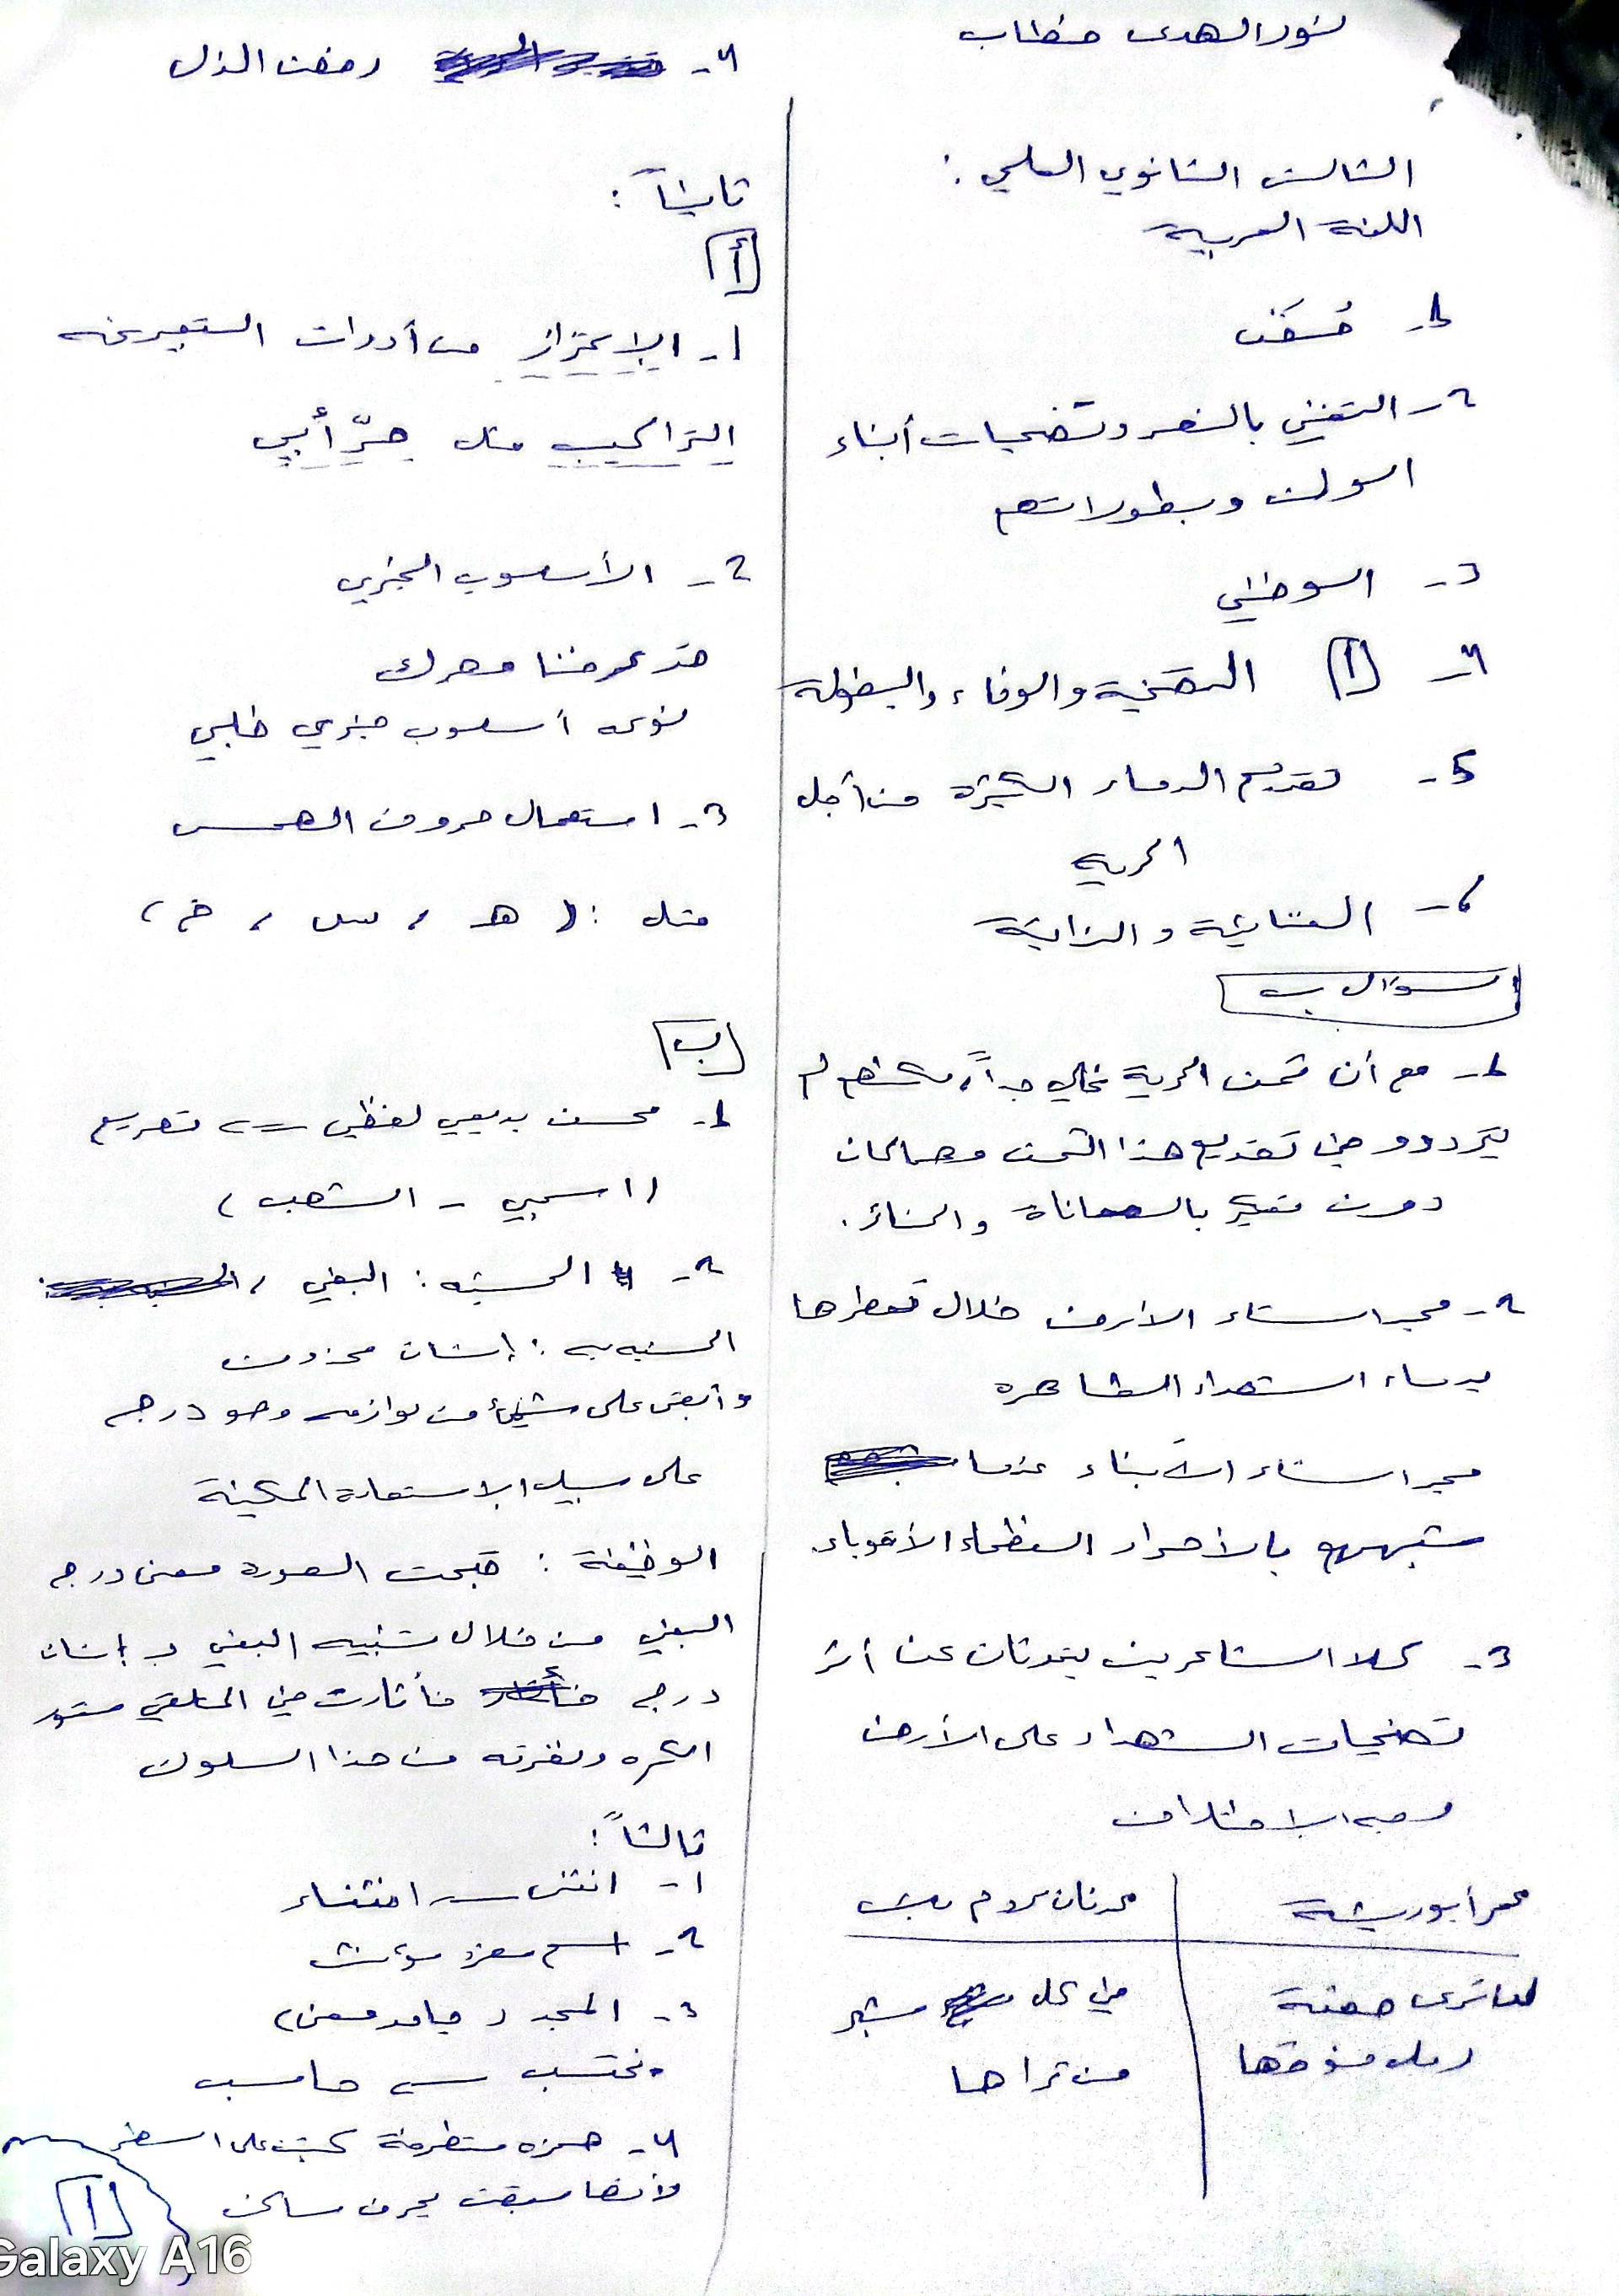 نور الهدى خطاب
الثالث الثانوي العلمي :
اللغة العربية
1-
2- التغني بالنصر وتضحيات أبناء
الوطن وبطولاتهم
3- الوطني
4- أ التضحية والوفاء والبطولة
5- تقديم الدماء الكثيرة من أجل
الحرية
6- الغنائية و الذاتية
سؤال ب
1- مع أن ثمن الحرية غالي جداً، لم
يترددو في تقديم هذا الثمن
دون تفكير بالمعاناة والخسائر.
2- الأرض خلال تعطرها
بدماء الشهداء الطاهرة
الأبناء عندما
شبههم بالأحرار العظماء الأقوياء.
3- كلا الشاعرين يتحدثان عن أثر
تضحيات الشهداء على الأرض
وجه الاختلاف
عمر أبو ريشة
عدنان مردم بك
لن ترى حفنة
رمل فوقها
في كل شبر
من ثراها
4- رفض الذل
ثانياً :
أ
1- الاعتزاز من أدوات التعبير عنه
التراكيب مثل حرّ أبي
2- الأسلوب الخبري
قد عرفنا مهرك
نوعه أسلوب خبري طلبي
3- استعمال حروف الهمس
مثل : ( هـ ، س ، خ )
ب
1- محسن بديعي لفظي => تصريع
( اسحبي - الشهب )
2- المشبه : البغي ،
المشبه به : إنسان محذوف
وأبقى على شيئ من لوازمه وهو درج
على سبيل الاستعارة المكنية
الوظيفة : قبحت الصورة معنى درج
البغي من خلال تشبيه البغي بإنسان
درج فأثارت في المتلقي شعور
الكره ونفرته من هذا السلوك
ثالثاً :
1- انتشى
2- اسم مفرد مؤنث
3- المجد ( جامد معنى )
4- همزة متطرفة كتبت على السطر
لأنها سبقت بحرف ساكن
1
Galaxy A16